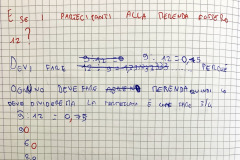 E SE I PARTECIPANTI ALLA MERENDA FOSSERO
12?
DEVI FARE 9:12=0,75 PERCHÉ
OGNUNO DEVE FARE MERENDA QUINDI SI
DEVE DIVIDERE MA LA È 3/4
9:12=0,75
90
60